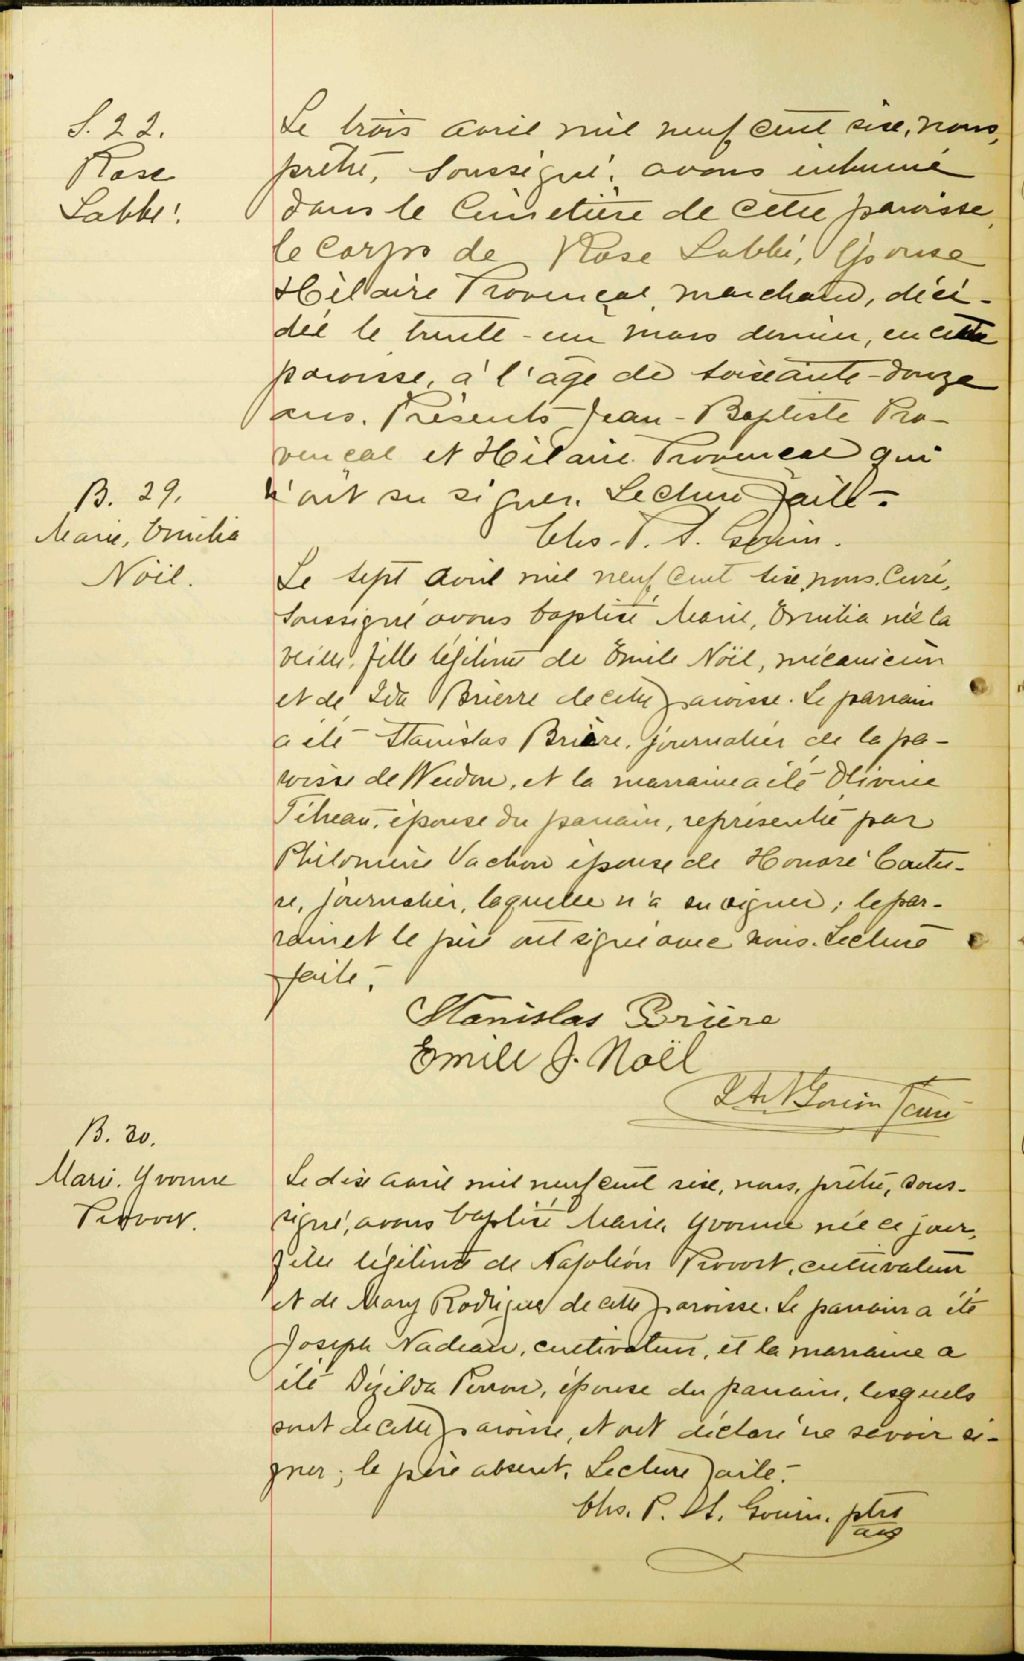 S. 22.
Rose
Labbé.
Le trois avril mil neuf cent six, nous,
prêtre, soussigné, avons inhumé
dans le cimetière de cette paroisse,
le corps de Rose Labbé, épouse
Hilaire Provençal, marchand, décé-
dée le trente-un mars dernier, en cette
paroisse, à l'âge de soixante-douze
ans. Présents Jean-Baptiste Pro-
vençal et Hilaire Provençal qui
n'ont su signer. Lecture faite.
Chs. P. A. Gouin.
B. 29.
Marie, Emilia
Nöil.
Le sept avril mil neuf cent six, nous, Curé,
soussigné avons baptisé Marie, Emilia née la
veille, fille légitime de Emile Nöil, mécanicien
et de Ida Brierre de cette paroisse. Le parrain
a été Stanislas Brière, journalier de la pa-
roisse de Weedon, et la marraine a été Olivine
épouse du parrain, représentée par
Philomène Vachon épouse de Honoré Coutu-
re, journalier, laquelle n'a su signer; le par-
rain et le père ont signé avec nous. Lecture
faite.
Stanislas Brière
Emile J. Noël
Gouin curé
B. 30.
Marie. Yvonne
Provost.
Le dix avril mil neuf cent six, nous, prêtre, sous-
signé, avons baptisé Marie, Yvonne née ce jour,
fille légitime de Napoléon Provost, cultivateur
et de Mary Rodrigue de cette paroisse. Le parrain a été
Joseph Nadeau, cultivateur, et la marraine a
été Dézilda Perron, épouse du parrain, lesquels
sont de cette paroisse, et ont déclaré ne savoir si-
gner; le père absent. Lecture faite.
Chs. P. A. Gouin. ptre